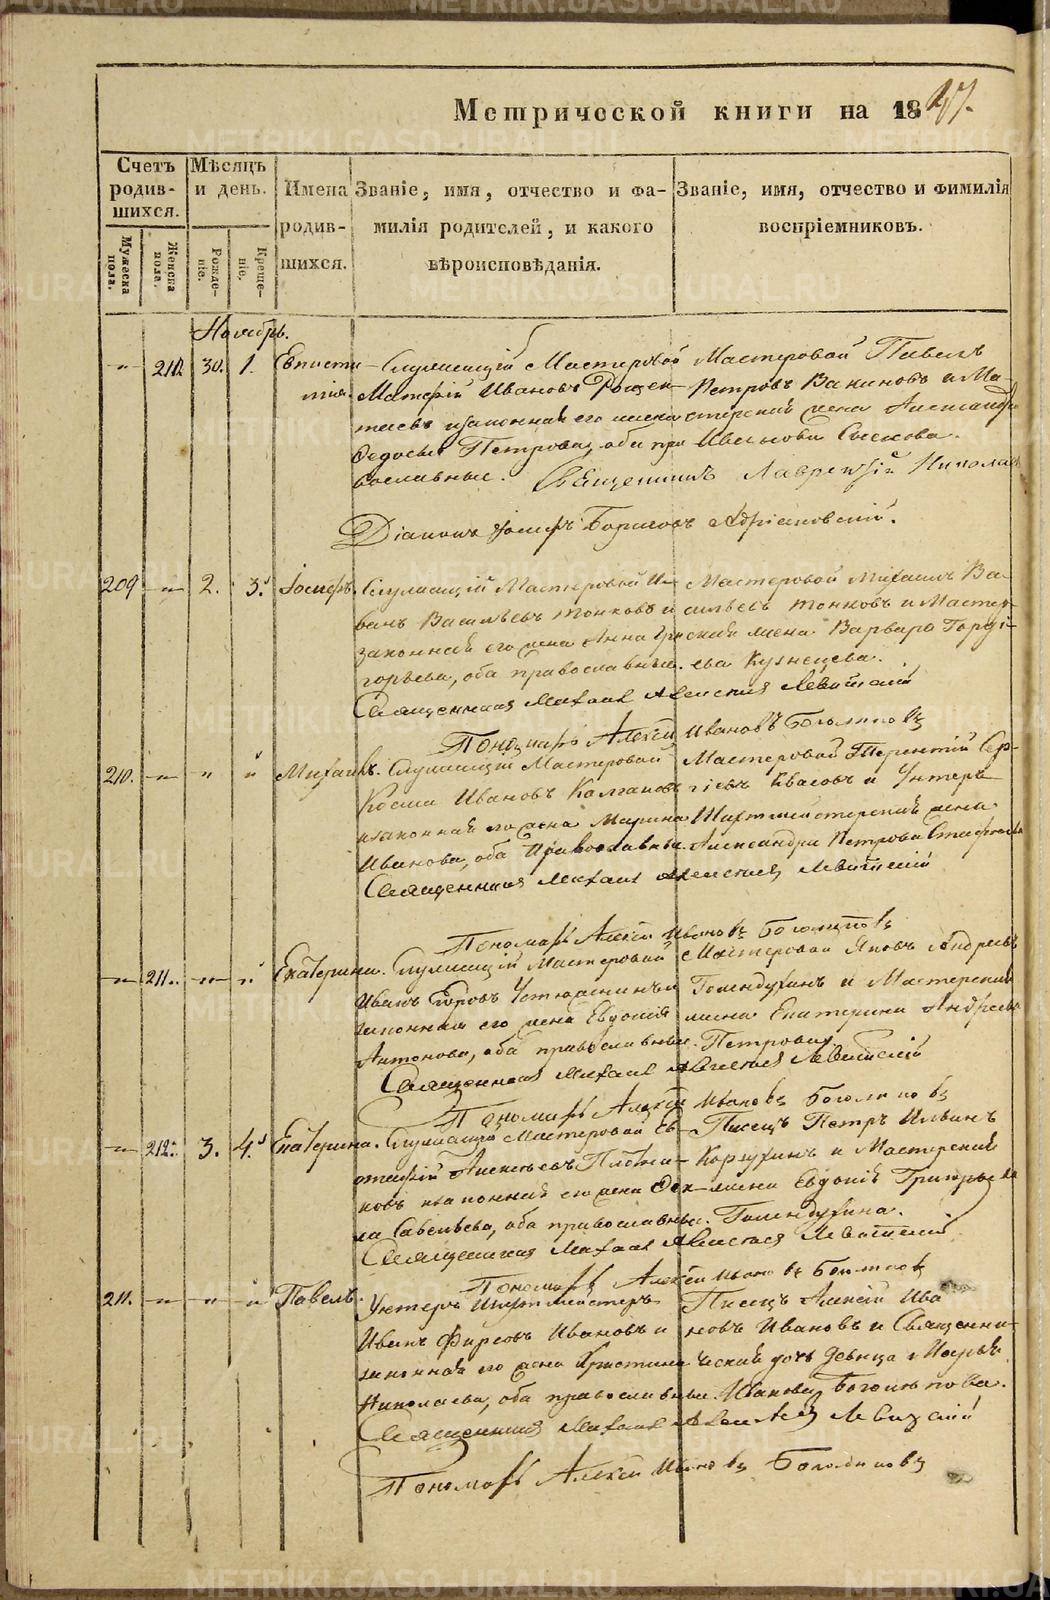 Метрической книги на 1847.
Счетъ родившихся.
Мужеска пола.
Женска пола.
Мѣсяцъ и день.
Рожденіе.
Крещеніе.
Имена родившихся.
Званіе, имя, отчество и фамилія родителей, и какого вѣроисповѣданія.
Званіе, имя, отчество и фимилія воспріемниковъ.
Ноябрь.
210. 30. 1.
Служащій Мастеровой
Матвей Ивановъ
законная его жена
Петрова, оба православные.
Мастеровой Павелъ
Петровъ Вакиновъ и Мастерская жена Александра
Священникъ Лаврентій Николаевъ
Діаконъ Іосифъ Борисовъ Адріановскій.
209 2. 3. Іосифъ.
Служащій Мастеровой Иванъ Васильевъ Тонковъ и
законная его жена Анна Григорьева, оба православные.
Мастеровой Михаилъ Васильевъ Тонковъ и Мастерская жена Варвара Гордіева Кузнецова.
Священникъ Михаилъ Алексѣевъ Левитскій
Пономарь Алексѣй Ивановъ Боголюбовъ
210. Михаилъ.
Служащій Мастеровой
Козма Ивановъ Калгановъ
и законная его жена Марина
Иванова, оба Православные.
Мастеровой Терентій Сергіевъ Квасовъ и Унтеръ
Шихтмейстерская жена
Александра Петрова Стафѣева
Священникъ Михаилъ Алексѣевъ Левитскій
Пономарь Алексѣй Ивановъ Боголюбовъ
211. Екатерина.
Служащій Мастеровой
Иванъ Егоровъ Устюжанинъ и
законная его жена Евдокія
Антонова, оба православные.
Мастеровой Яковъ Андреевъ
Голендухинъ и Мастерская
жена Екатерина Андреева
Петровыхъ
Священникъ Михаилъ Алексѣевъ Левитскій
Пономарь Алексѣй Ивановъ Боголюбовъ
212. 3. 4. Екатерина.
Служащій Мастеровой Евстафій Алексѣевъ Плотниковъ и законная его жена Фекла Савельева, оба православные.
Писецъ Петръ Ильинъ
Корзухинъ и Мастерская
жена Евдокія Григорьева
Голендухина.
Священникъ Михаилъ Алексѣевъ Левитскій
Пономарь Алексѣй Ивановъ Боголюбовъ
211. Павелъ.
Унтеръ Шихтмейстеръ
Иванъ Фирсовъ Ивановъ и
законная его жена Христина
Николаева, оба православные.
Писецъ Алексѣй Ивановъ Ивановъ и Священническая дочь девица Марья
Иванова Боголюбова.
Священникъ Михаилъ Алексѣевъ Левитскій
Пономарь Алексѣй Ивановъ Боголюбовъ
METRIKI.GASO-URAL.RU